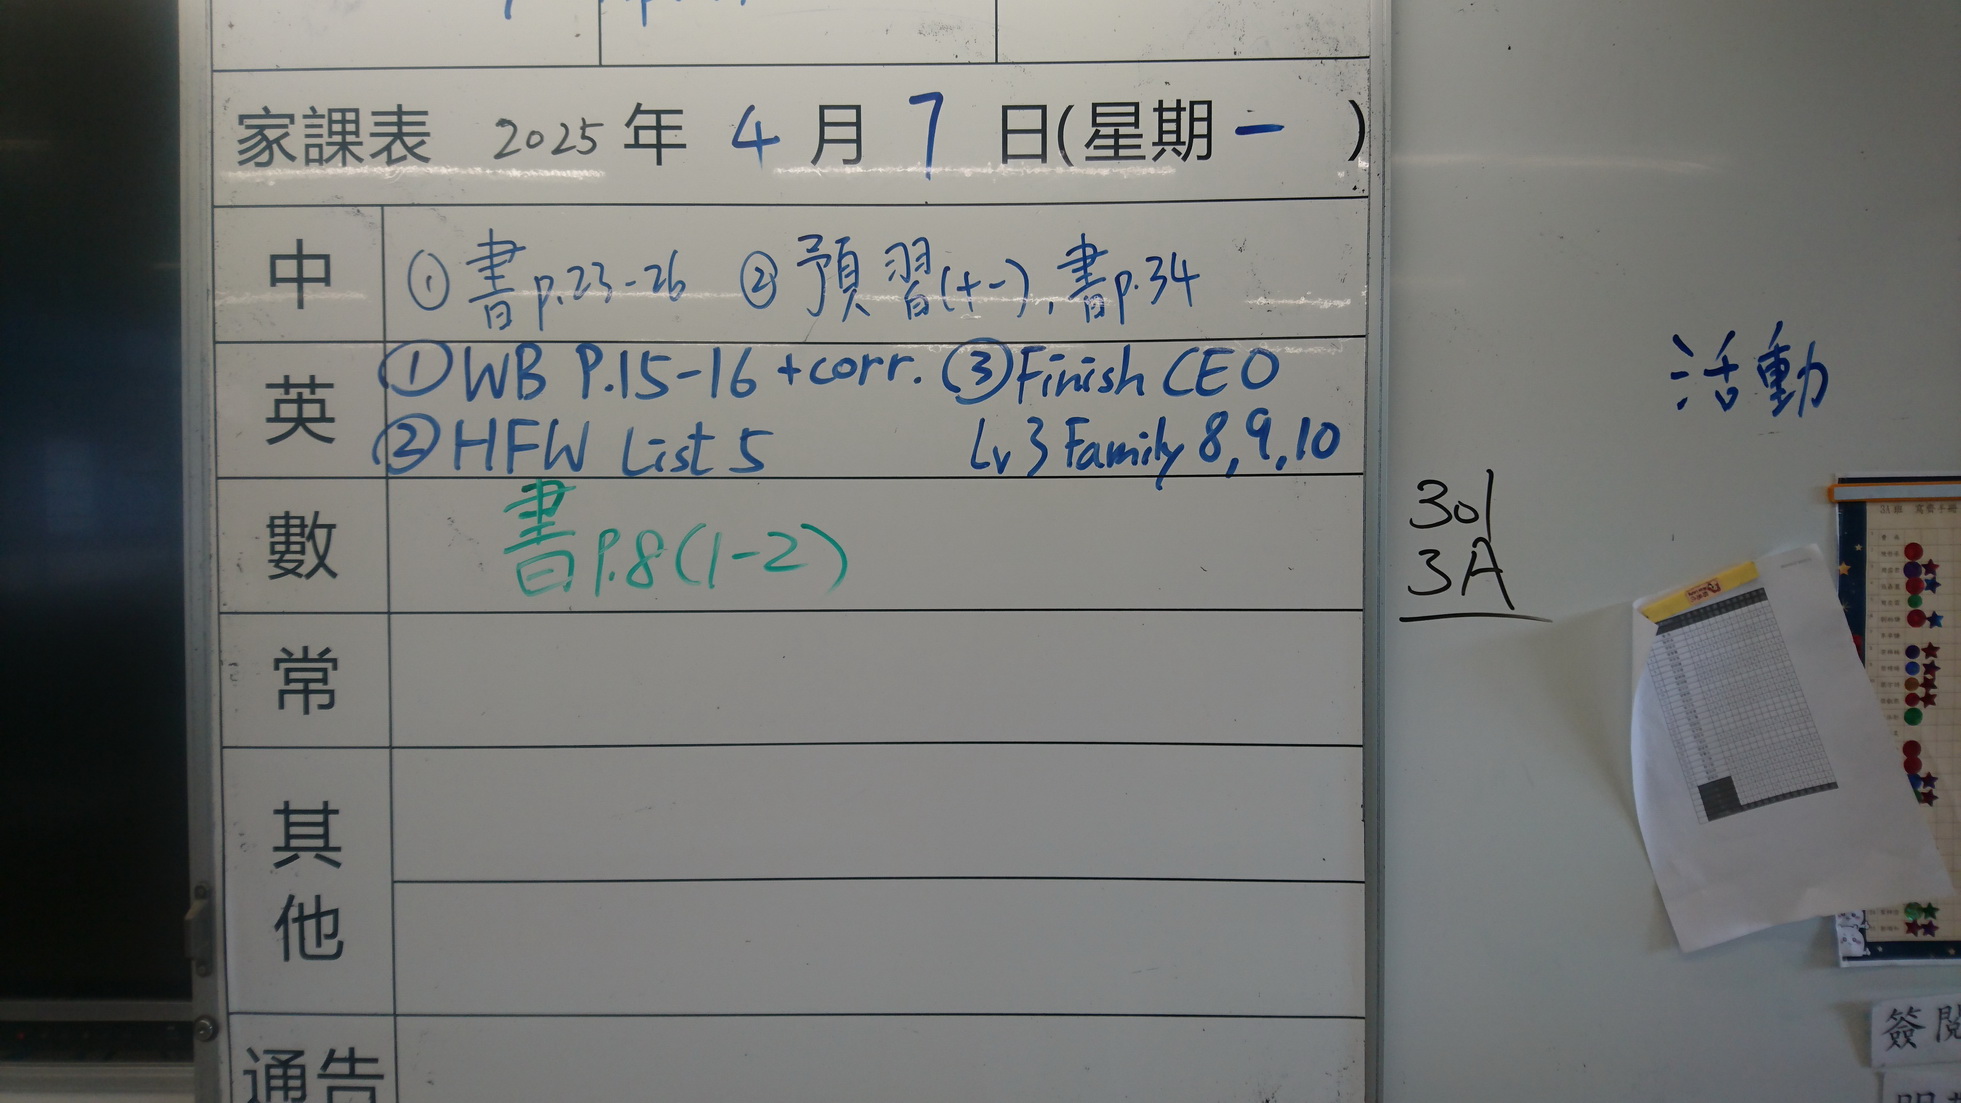 家課表 2025 年 4 月 7 日(星期一 )
中 ①書p.23-26 ②預習(十一),書p.34
英 ①WB P.15-16 +corr. ③Finish CEO
②HFW List 5 Lv 3 Family 8,9,10
數 書P.8(1-2)
常
其他
通告
活動
301
3A
簽閱